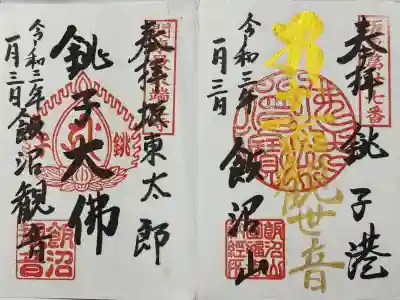 奉拝 坂東太郎
銚子大佛
令和三年
一月三日
飯沼観音
飯沼
観音
第廿七番
奉拝 銚子港
観世音
飯沼山
令和三年
一月三日